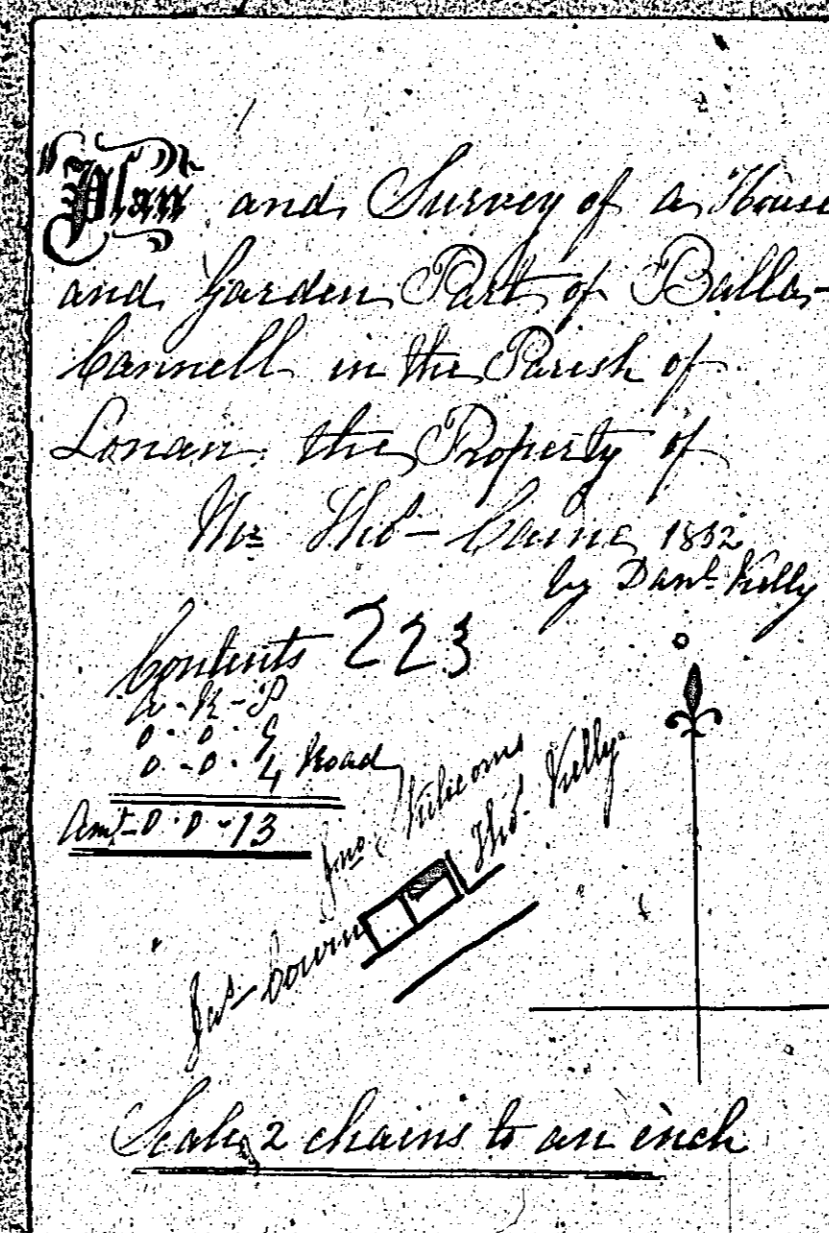 Plan and Survey of a House
and Garden Part of Balla-
Cannell in the Parish of
Lonan the Property of
Mr Tho^s Caine 1832
by Dan^l Kelly
Contents 223
A - R - P
0 - 0 - 9
0 - 0 - 4 Road
Am^t - 0 - 0 - 13
Jno
Tho^s Kelly
Ja^s
Scale 2 chains to an inch